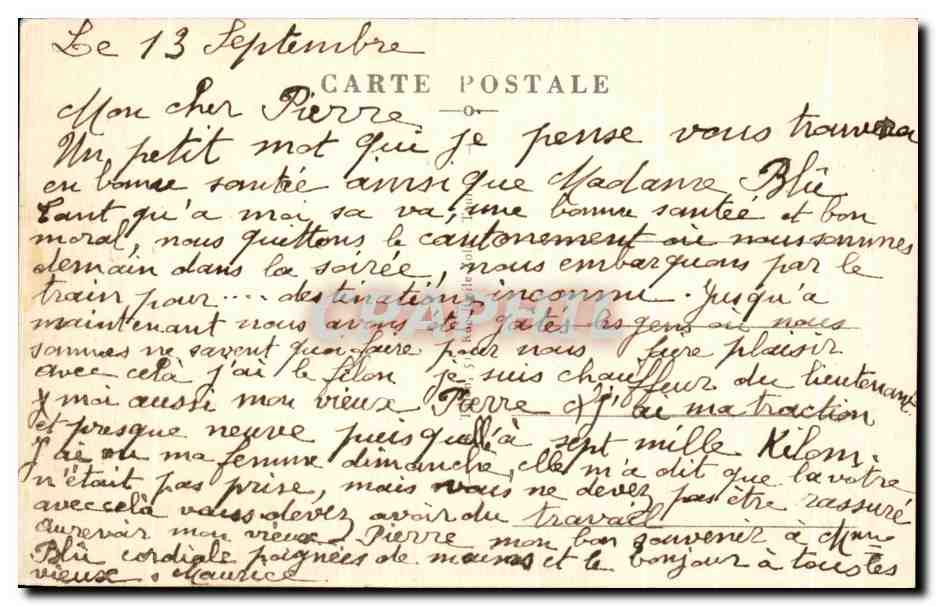 Le 13 Septembre
CARTE POSTALE
Mon cher Pierre
Un petit mot qui je pense vous trouvera
en bonne santée ainsi que Madame Blû
tant qu'a moi sa va, une bonne santée et bon
moral, nous quittons le cantonement où nous sommes
demain dans la soirée, nous embarquons par le
train pour .... destination inconnu. Jusqu'a
maintenant nous avons été gatés les gens où nous
sommes ne savent quoi faire pour nous faire plaisir
avec celà j'ai le filon je suis chauffeur du lieutenant
moi aussi mon vieux Pierre j'ai ma traction
et presque neuve puisqu'elle à sept mille Kilom.
J'ai vu ma femme dimanche, elle m'a dit que la votre
n'était pas prise, mais vous ne devez pas être rassuré
avec celà vous devez avoir du travail
aurevoir mon vieux Pierre mon bon souvenir à Mme
Blû cordiale poignées de mains et le bonjour à tous tes
vieux. Maurice
CPAPHIL